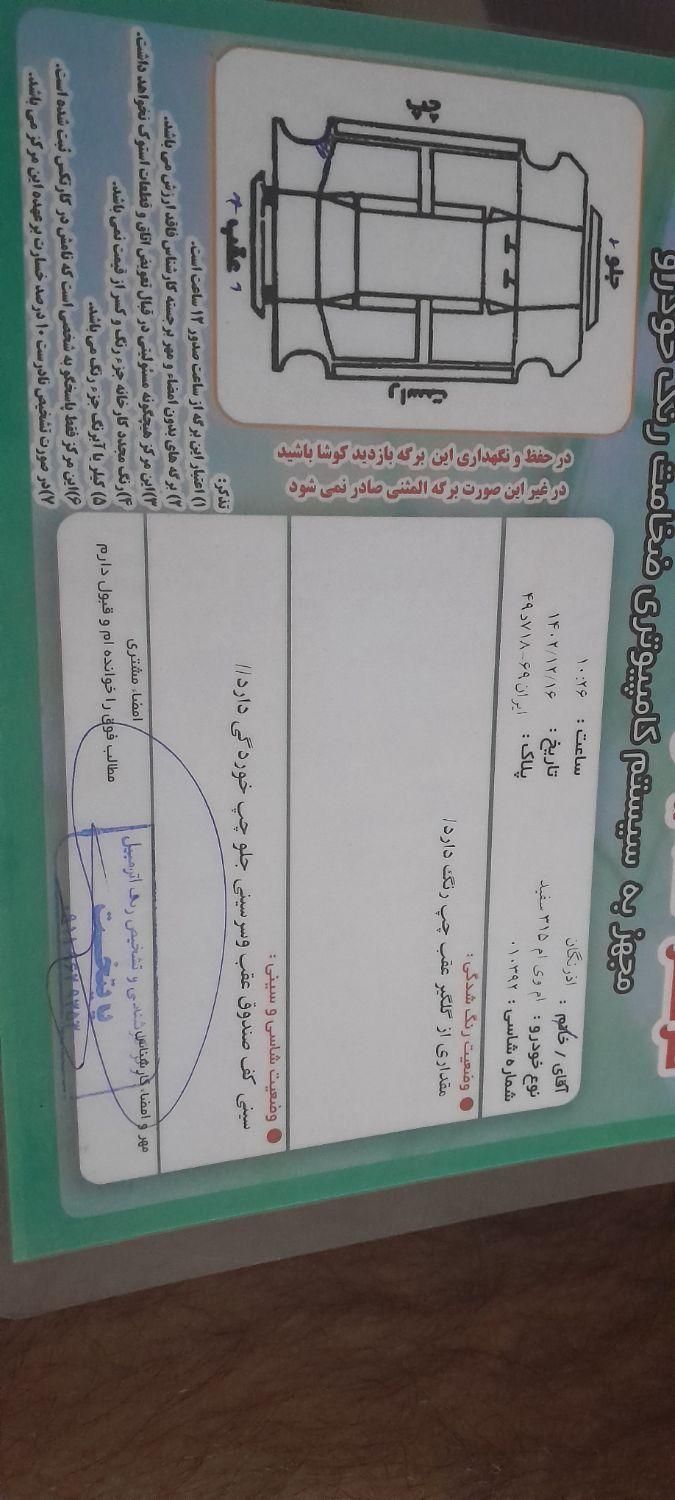 مجهز به سیستم کامپیوتری ضخامت رنگ خودرو
ساعت : ۱۰:۲۶
تاریخ : ۱۴۰۲/۱۲/۱۶
پلاک : ایران۶۹-۷۱۸د۴۹
آقای / خانم : اذرنگان
نوع خودرو : ام وی ام ۳۱۵ سفید
شماره شاسی : ۰۱۰۳۹۲
وضعیت رنگ شدگی :
مقداری از گلگیر عقب چپ رنگ دارد/
وضعیت شاسی و سینی :
سینی کف صندوق عقب وسرسینی جلو چپ خوردگی دارد//
امضاء مشتری
مطالب فوق را خوانده ام و قبول دارم
مهر و امضاء کارشناس
پایتخت
جلو
چپ
راست
عقب
در حفظ و نگهداری این برگه بازدید کوشا باشید
در غیر این صورت برگه المثنی صادر نمی شود
تذکر:
۱) اعتبار این برگه از ساعت صدور ۱۲ ساعت است.
۲) برگه های بدون امضاء و مهر برجسته کارشناس فاقد ارزش می باشد.
۳)این مرکز هیچگونه مسئولیتی در قبال تعویض اتاق و قطعات استوک نخواهد داشت.
۴)رنگ مجدد کارخانه جزء رنگ و کسر از قیمت نمی باشد.
۵) کیلر یا آبرنگ جزء رنگ می باشد.
۶)این مرکز فقط پاسخگو به شخصی است که نامش در کارتکس ثبت شده است.
۷)در صورت تشخیص نادرست ۱۰ درصد خسارت برعهده این مرکز می باشد.